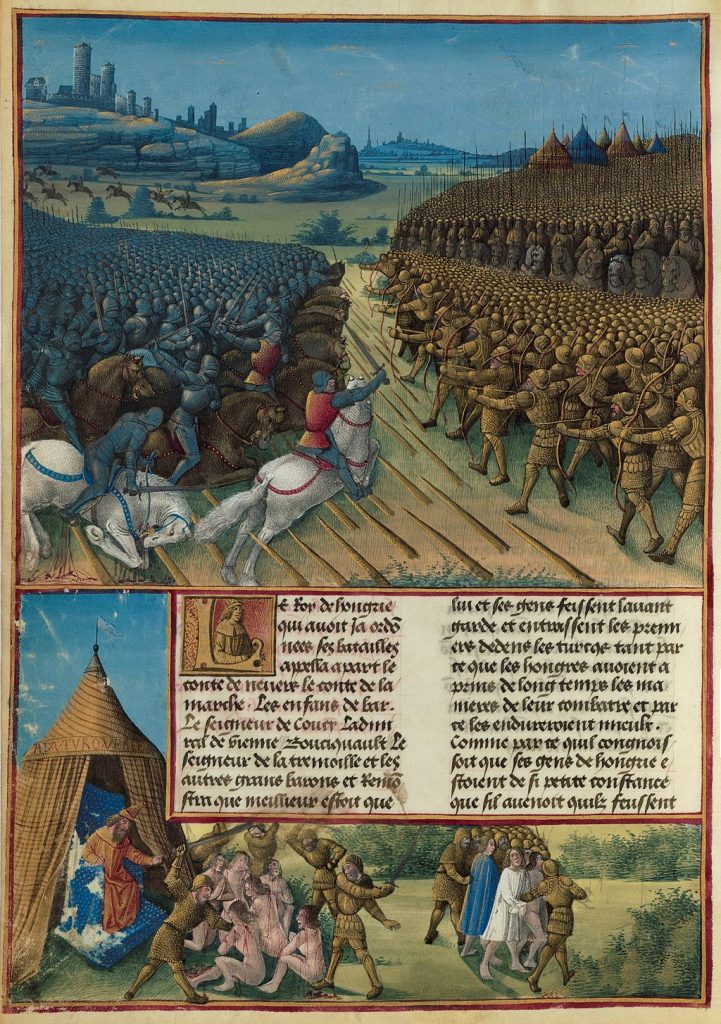 LE Roy de hongrie
qui auoit Ja ordõ
nees ses batailles
appella apart le
conte de neuers le conte de la
marche . Les enfans de bar.
Le seigneur de Coucy Ladmi
ral de vienne Bouciquault Le
seigneur de la tremoille et les
autres grans barons et Remõ
stra que meilleur estoit que
lui et ses gens feissent lauant
garde et entrassent les premi
ers dedens les turcqz tant par
ce que les hongres auoient a
prins de long temps les ma
nieres de leur combatre et par
ce les endureroient mieulx .
Comme par ce quil congnois
soit que ses gens de hongrie e
stoient de si petite constance
que sil auenoit quilz feussent